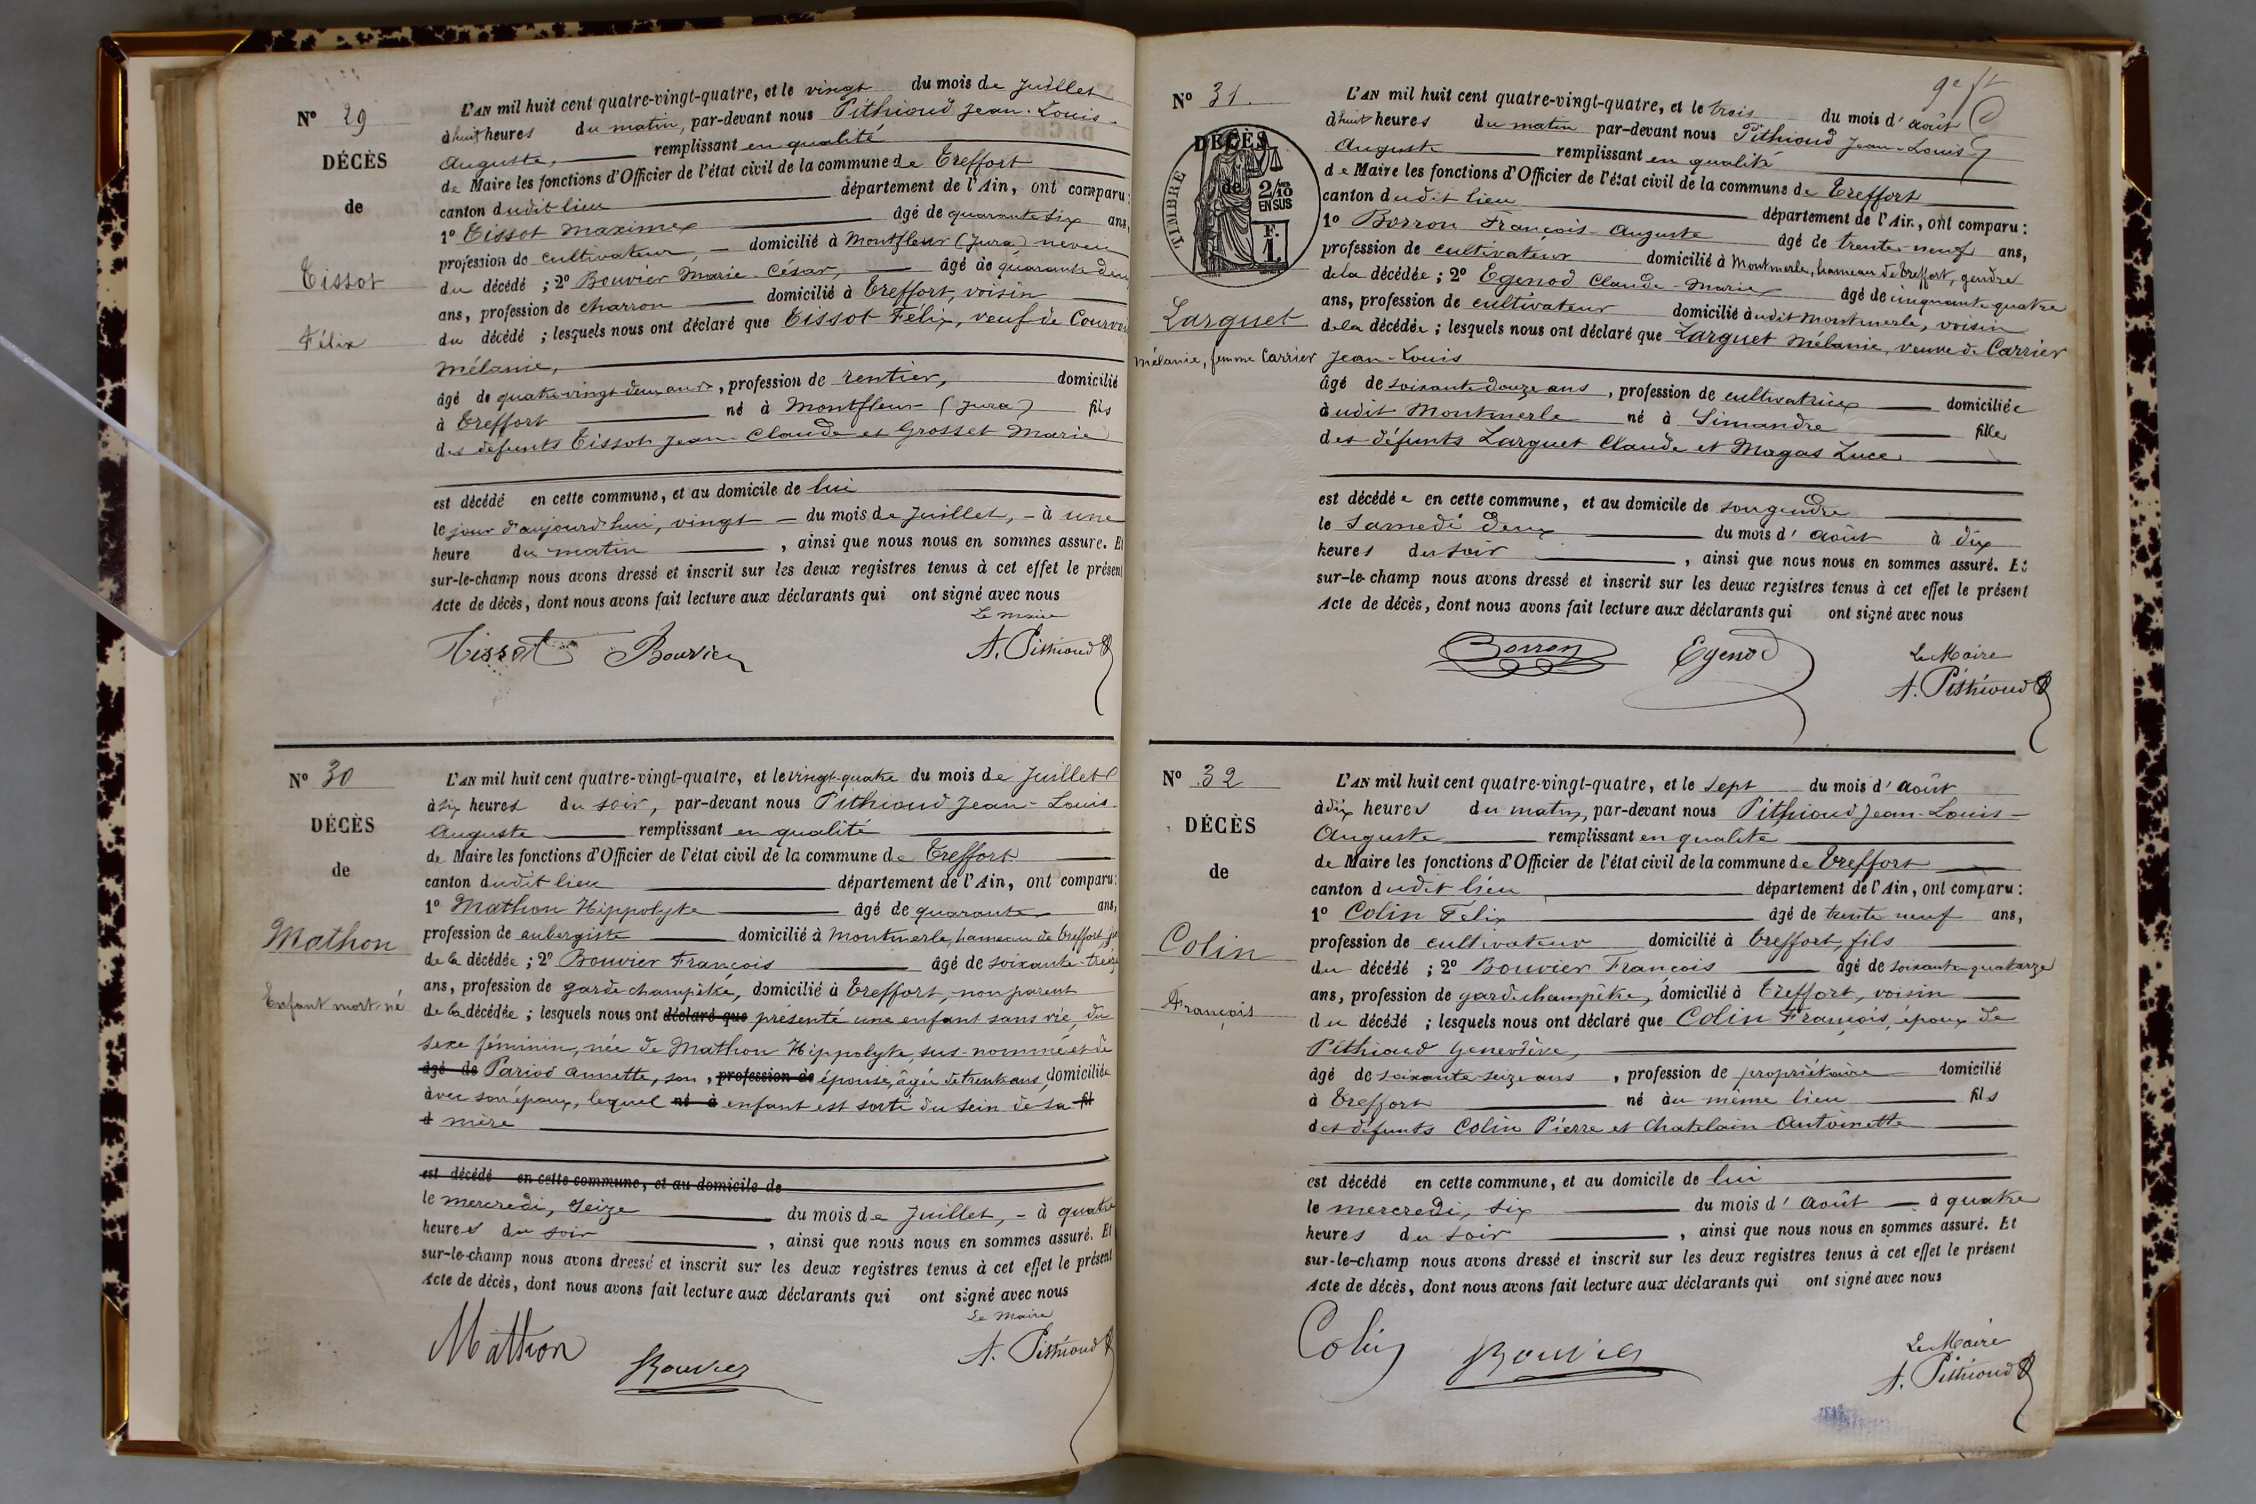 N° 29
DÉCÈS
de
Tissot
Félix
L'AN mil huit cent quatre-vingt-quatre, et le vingt du mois de Juillet
à huit heures du matin, par-devant nous Pithioud Jean-Louis-
Auguste, remplissant en qualité
de Maire les fonctions d'Officier de l'état civil de la commune de Treffort
canton dudit lieu département de l'Ain, ont comparu:
1° Tissot Maxime âgé de quarante six ans,
profession de cultivateur, domicilié à Montfleur (Jura) neveu
du décédé ; 2° Bouvier Marie-César, âgé de quarante deux
ans, profession de charron domicilié à Treffort, voisin
du décédé ; lesquels nous ont déclaré que Tissot Félix, veuf de
Mélanie,
âgé de quatre-vingt-deux ans, profession de rentier, domicilié
à Treffort né à Montfleur (Jura) fils
des défunts Tissot Jean-Claude et Grosset Marie
est décédé en cette commune, et au domicile de lui
le jour d'aujourd'hui, vingt du mois de Juillet, à une
heure du matin, ainsi que nous nous en sommes assuré. Et
sur-le-champ nous avons dressé et inscrit sur les deux registres tenus à cet effet le présent
Acte de décès, dont nous avons fait lecture aux déclarants qui ont signé avec nous
Le Maire
Tissot Bouvier A. Pithioud
N° 30
DÉCÈS
de
Mathon
Enfant mort né
L'AN mil huit cent quatre-vingt-quatre, et le vingt-quatre du mois de Juillet
à six heures du soir, par-devant nous Pithioud Jean-Louis-
Auguste remplissant en qualité
de Maire les fonctions d'Officier de l'état civil de la commune de Treffort
canton dudit lieu département de l'Ain, ont comparu:
1° Mathon Hippolyte âgé de quarante ans,
profession de aubergiste domicilié à Montmerle, hameau de Treffort,
de la décédée ; 2° Bouvier François âgé de soixante-treize
ans, profession de garde champêtre, domicilié à Treffort, non parent
de la décédée ; lesquels nous ont déclaré que présenté une enfant sans vie, du
sexe féminin, née de Mathon Hippolyte, sus-nommé et de
âgé de Pariod Annette, son, profession de épouse, âgée de trente ans, domiciliée
avec son époux, lequel né à enfant est sorti du sein de sa fil
d mère
est décédé en cette commune, et au domicile de
le mercredi, seize du mois de Juillet, à quatre
heures du soir, ainsi que nous nous en sommes assuré. Et
sur-le-champ nous avons dressé et inscrit sur les deux registres tenus à cet effet le présent
Acte de décès, dont nous avons fait lecture aux déclarants qui ont signé avec nous
Le Maire
Mathon Bouvier A. Pithioud
N° 31.
DÉCÈS
de
TIMBRE
2/10 EN SUS
F. 1.
Larguet
Mélanie, femme Carrier
L'AN mil huit cent quatre-vingt-quatre, et le trois du mois d'août
à huit heures du matin par-devant nous Pithioud Jean-Louis-
Auguste remplissant en qualité
de Maire les fonctions d'Officier de l'état civil de la commune de Treffort
canton dudit lieu département de l'Ain, ont comparu:
1° Borron François-Auguste âgé de trente-neuf ans,
profession de cultivateur domicilié à Montmerle, hameau de Treffort, gendre
de la décédée ; 2° Egenod Claude-Marie âgé de cinquante-quatre
ans, profession de cultivateur domicilié audit Montmerle, voisin
de la décédée ; lesquels nous ont déclaré que Larguet Mélanie, veuve de Carrier
Jean-Louis
âgé de soixante douze ans, profession de cultivatrice domiciliée
audit Montmerle né à Simandre fille
des défunts Larguet Claude et Magas Luce
est décédée en cette commune, et au domicile de son gendre
le samedi deux du mois d'août à dix
heures du soir, ainsi que nous nous en sommes assuré. Et
sur-le-champ nous avons dressé et inscrit sur les deux registres tenus à cet effet le présent
Acte de décès, dont nous avons fait lecture aux déclarants qui ont signé avec nous
Borron Egenod Le Maire
A. Pithioud
N° 32
DÉCÈS
de
Colin
François
L'AN mil huit cent quatre-vingt-quatre, et le sept du mois d'août
à dix heures du matin, par-devant nous Pithioud Jean-Louis-
Auguste remplissant en qualité
de Maire les fonctions d'Officier de l'état civil de la commune de Treffort
canton dudit lieu département de l'Ain, ont comparu:
1° Colin Félix âgé de trente neuf ans,
profession de cultivateur domicilié à Treffort, fils
du décédé ; 2° Bouvier François âgé de soixante-quatorze
ans, profession de garde champêtre, domicilié à Treffort, voisin
du décédé ; lesquels nous ont déclaré que Colin François, époux de
Pithioud Geneviève,
âgé de soixante-seize ans, profession de propriétaire domicilié
à Treffort né au même lieu fils
des défunts Colin Pierre et Chatelain Antoinette
est décédé en cette commune, et au domicile de lui
le mercredi, six du mois d'août à quatre
heures du soir, ainsi que nous nous en sommes assuré. Et
sur-le-champ nous avons dressé et inscrit sur les deux registres tenus à cet effet le présent
Acte de décès, dont nous avons fait lecture aux déclarants qui ont signé avec nous
Colin Bouvier Le Maire
A. Pithioud